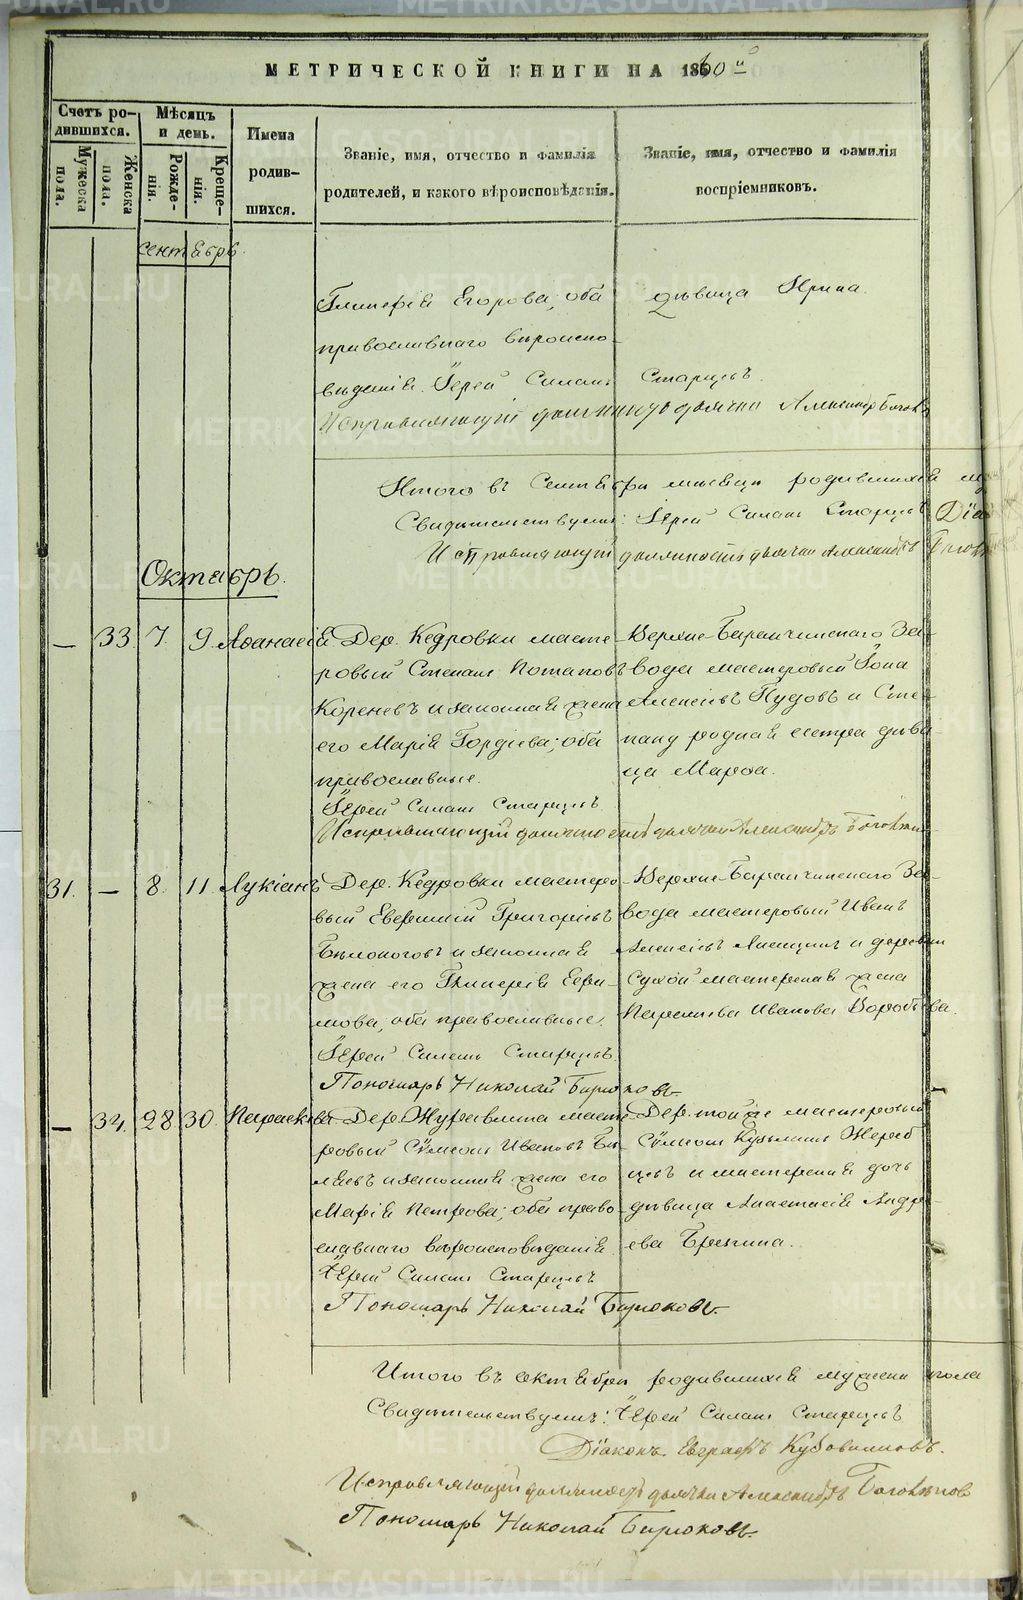 МЕТРИЧЕСКОЙ КНИГИ НА 1860й
Счетъ ро-
дившихся.
Мѣсяцъ
и день.
Имена
родив-
шихся.
Званіе, имя, отчество и фамилія
родителей, и какого вѣроисповѣданія.
Званіе, имя, отчество и фамилія
воспріемниковъ.
Мужеска
пола.
Женска
пола.
Рожде-
нія.
Креще-
нія.
сентябрь.
Гликерія Егорова, оба
православнаго вѣроиспо-
вѣданія. Іерей Силанъ Старцевъ.
дѣвица Ирина.
Исправляющій должность дьячка Александръ
Итого въ Сентябрѣ мѣсяцѣ родившихся
Свидѣтельствуемъ: Іерей Силанъ Старцевъ
Исправляющій должность дьячка Александръ
Октябрь.
— 33. 7. 9. Аѳанасія
Дер. Кедровки масте-
ровый Степанъ Потаповъ
Кореневъ и законная жена
его Марія Гордіева; оба
православные.
Іерей Силанъ Старцевъ
Исправляющій должность дьячка Александръ
Верхне-Баранчинскаго За-
вода мастеровый Іона
Алексѣевъ Пудовъ и Сте-
пану родная сестра дѣви-
ца Марѳа.
31. — 8. 11. Лукіанъ
Дер. Кедровки мастеро-
вый Евфимій Григорьевъ
Бѣлоноговъ и законная
жена его Гликерія Ефи-
мова, оба православные.
Іерей Силанъ Старцевъ.
Пономарь Николай Бирюковъ.
Верхне-Баранчинскаго За-
вода мастеровый Иванъ
Алексѣевъ и деревни
Сухой мастерская жена
Иванова Воробьева.
— 34. 28 30. Параскева
Дер. Журавлика масте-
ровый Сѵмеонъ Ивановъ Бѣ-
ляевъ и законная жена его
Марія Петрова; оба право-
славнаго вѣроисповѣданія.
Іерей Силанъ Старцевъ
Пономарь Николай Бирюковъ.
Дер. той же мастеровый
Сѵмеонъ Кузьминъ Жереб-
цовъ и мастерская дочь
дѣвица Анастасія Андре-
ева
Итого въ октябрѣ родившихся мужеска пола
Свидѣтельствуемъ: Іерей Силанъ Старцевъ
Діаконъ Евграфъ Кузовниковъ.
Исправляющій должность дьячка Александръ
Пономарь Николай Бирюковъ.
METRIKI.GASO-URAL.RU